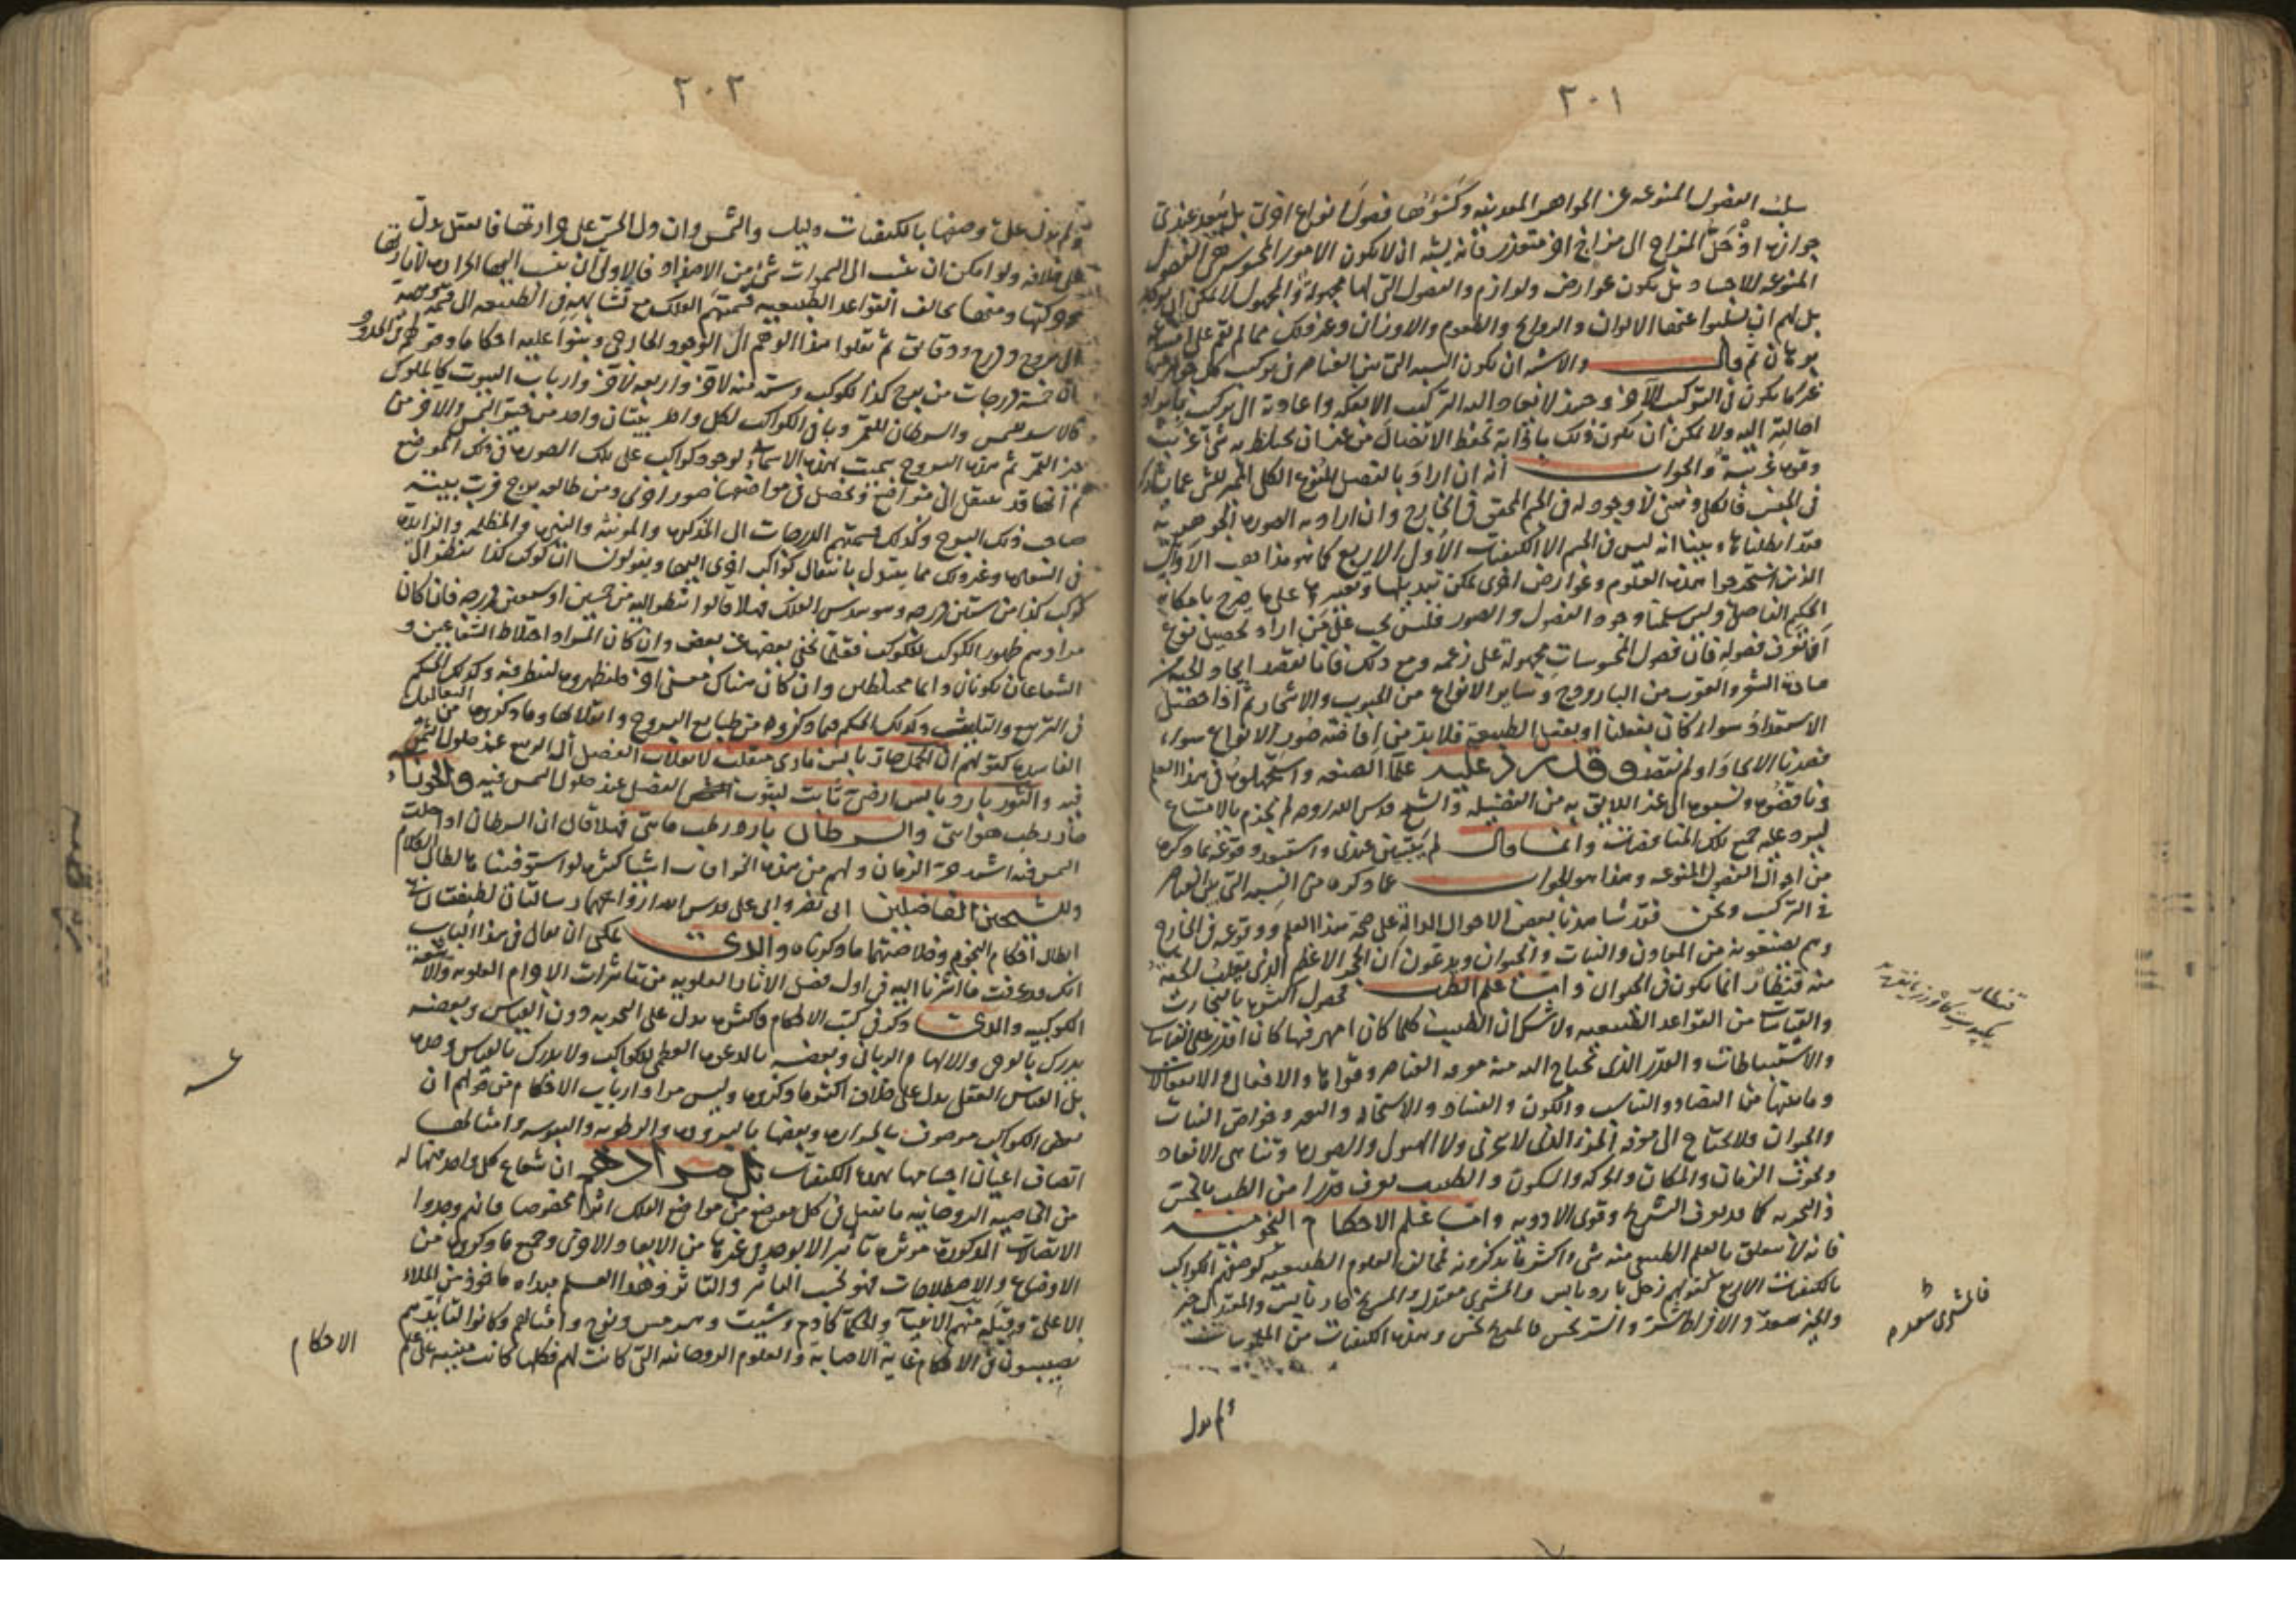 ٢٠١
سلب الفصول المنوعة عن الجواهر المعدنية وكسوتها فصول انواع اخرى بل يبعد عندى
جوازه اذ حَلّ المزاج الى مزاج اخر متعذر فانه يشبه ان لا يكون الامور المحسوسة هى الفصول
المنوعة للاجساد بل يكون عوارض ولوازم والفصول التى لها مجهولة والمجهول لا يمكن
بل لهم ان يسلبوا عنها الالوان والروايح والطعوم والاوزان وغير ذلك مما لم يقم على امتناعه
برهان ثم قال والاشبه ان يكون النسبة التى بين العناصر فى تركيب كل جوهر منها
غير ما يكون فى التركيب الآخر وحينئذ لا يعاد اليه التركيب الا بفكه واعادته الى تركيب ما يراد
احالته اليه ولا يمكن ان يكون ذلك باذابة تحفظ الاتصال من غير ان يختلط به شى غريب
وقوة غريبة والجواب انه ان اراد بالفصل المنوع الكلى المميز للشى عما يشاركه
فى الجنس فالكلى ذهنى لا وجود له فى الجسم المحقق فى الخارج وان اراد به الصورة الجوهرية
فقد ابطلناها وبينا انه ليس فى الجسم الا الكيفيات الاول الاربع كما هو مذاهب الاوائل
الذين استخرجوا هذه العلوم وعوارض اخرى يمكن تبديلها وتغييرها على ما صرح بامكانه
الحكيم الفاضل ولين سلمنا وجود الفصول والصور فليس يجب على من اراد تحصيل نوع
ان تعرف فصوله فان فصول المحسوسات مجهولة على زعمه ومع ذلك فانا نقصد ايجاد الحية من
مادة الشعر والعقرب من الباروج وساير الانواع من الحبوب والاشجار ثم اذا حصل
الاستعداد سواء كان بفعلنا او بفعل الطبيعة فلا بد من افاضة صور الانواع سواء
قصدنا الايجاد او لم نقصد وقد رد عليه علماء الصنعة واستجهلوه فى هذا العلم
وناقضوه ونسبوه الى غير اللايق به من الفضيلة والشيخ قدس الله روحه لم يجزم بالامتناع
ليرد عليه جميع تلك المناقضات وانما قال لم يتبين عندى واستبعد وقوعه بما ذكره
من احوال الفصول المنوعة وهذا هو الجواب عما ذكره من النسبة التى بين العناصر
فى التركيب ونحن فقد شاهدنا بعض الاحوال الدالة على صحة هذا العلم ووقوعه فى الخارج
وهم يصنعونه من المعادن والنبات والحيوان ويدعون ان الحجر الاعظم الذى
منه قنطار انما يكون فى الحيوان واما علم الطب فحصول اكثره بالتجارب
والقياسات من القواعد الطبيعية ولا شك ان الطبيب كلما كان امهر فيها كان اقدر على القياسات
والاستنباطات والقدر الذى تحتاج اليه منه معرفة العناصر وقواها والافعال والانفعالات
وما يتبعها من التضاد والتناسب والكون والفساد والاستحالة والنمو وخواص النبات
والحيوان ولا يحتاج الى معرفة الجزء الذى لا يتجزى ولا الهيولى والصورة وتناهى الابعاد
ونحوه الزمان والمكان والحركة والسكون والطبيب يعرف قدرا من الطب بالحس
والتجربة كما فى التشريح وقوى الادوية واما علم الاحكام النجومية
فانه لا يتعلق بالعلم الطبيعى منه شى واكثر ما يذكرونه مخالف للعلوم الطبيعية كوصفهم الكواكب
بالكيفيات الاربع كقولهم زحل بارد يابس والمشترى معتدل والمريخ حار يابس والمعتدل خير
والخير سعد والافراط شر والشر نحس فالمريخ نحس وهذه الكيفيات من الملموسات
قنطار
فالمشترى سعد م
ولم يدل
٢٠٢
ولم يدل على وصفها بالكيفيات دليل والشمس وان دل الحس على حرارتها فالعقل يدل
على خلافه ولو امكن ان ينسب الى السموات شى من الاضداد فالاولى ان ينسب اليها الحرارة لانارتها
وحركتها ومنها مخالف القواعد الطبيعية قسمتهم الفلك مع تشابهه فى الطبيعة الى قسمة وهمية
الى بروج ودرج ودقايق ثم نقلوا هذا الوهم الى الوجود الخارجى وبنوا عليه احكاما
ان خمسة درجات من برج كذا لكوكب وستة منه لآخر واربعة لآخر وارباب البيوت كالملوك
كالاسد للشمس والسرطان للقمر وباقى الكواكب لكل واحد بيتان واحد من حيز الشمس والاخر من
حيز القمر ثم هذه البروج سميت بهذه الاسماء لوجود كواكب على تلك الصورة فى ذلك الموضع
ثم انها قد تنتقل الى مواضع وتحصل فى مواضعها صور اخرى ومن طالعه برج خرب بيته
صاحب ذلك البرج وكذلك قسمتهم الدرجات الى المذكرة والمونثة والنيرة والمظلمة والزايدة
فى السعادة وغير ذلك مما يتبدل بانتقال كواكب اخرى اليها ويقولون ان كوكب كذا ينظر الى
كوكب كذا من ستين درجة وهو سدس الفلك فهلا قالوا ينظر اليه من خمسين او سبعين درجة فان كان
مرادهم ظهور الكوكب للكوكب فقلما تخفى بعضها عن بعض وان كان المراد اختلاط الشعاعين و
الشعاعان يكونان دائما مختلطين وان كان هناك معنى آخر فليظهروه لننظر فيه وكذلك الحكم
فى التربيع والتثليث وكذلك الحكم فيما ذكروه من طبايع البروج وامثالها وما ذكروه من التعاليل
الفاسدة كقولهم ان الحمل حار يابس نارى منقلب لانقلاب الفصل الى الربيع عند حلول الشمس
فيه والثور بارد يابس ارضى ثابت لثبوت الفصل عند حلول الشمس فيه والجوزاء
حار رطب هوائى والسرطان بارد رطب مائى فهلا قال ان السرطان اذا حلت
الشمس فيه اشتد حر الزمان ولهم من هذه الخرافات اشيا كثيرة لو استوفيناها لطال الكلام
وللشيخين الفاضلين ابى نصر وابى على قدس الله ارواحهما رسالتان لطيفتان فى
ابطال احكام النجوم وخلاصتهما ما ذكرناه والذى يمكن ان يقال فى هذا الباب
انك قد عرفت ما اشرنا اليه فى اول فصل الاثار العلوية من تاثيرات الاجرام العلوية والاشعة
الكوكبية والذى ذكر فى كتب الاحكام فاكثره يدل على التجربة دون القياس وبعضه
يدرك بالوحى والالهام الربانى وبعضه بالدعوة العظمى للكواكب ولا يدرك بالقياس وحده
بل القياس العقلى يدل على خلاف اكثر ما ذكروه وليس مراد ارباب الاحكام من قولهم ان
بعض الكواكب موصوف بالحرارة وبعضها بالبرودة والرطوبة واليبوسة وامثالها
اتصاف اعيان اجسامها بهذه الكيفيات بل مرادهم ان شعاع كل واحد منها له
من الخاصية الروحانية ما يفعل فى كل موضع من مواضع الفلك اثرا مخصوصا فانهم وجدوا
الاتصالات المذكورة موثرة تاثيرا لا يوجد فى غيرها من الابعاد والاخرى وجميع ما ذكروه من
الاوضاع والاصطلاحات فهو بحسب التاثير والتاثر وهذا العلم مبداه ماخوذ من الملاء
الاعلى وقبله منهم الانبياء والحكما كادم وشيث وهرمس ونوح وامثالهم وكانوا لتايدهم
يصيبون فى الاحكام غاية الاصابة والعلوم الروحانية التى كانت لهم فكلها كانت مبنية على علم
الاحكام